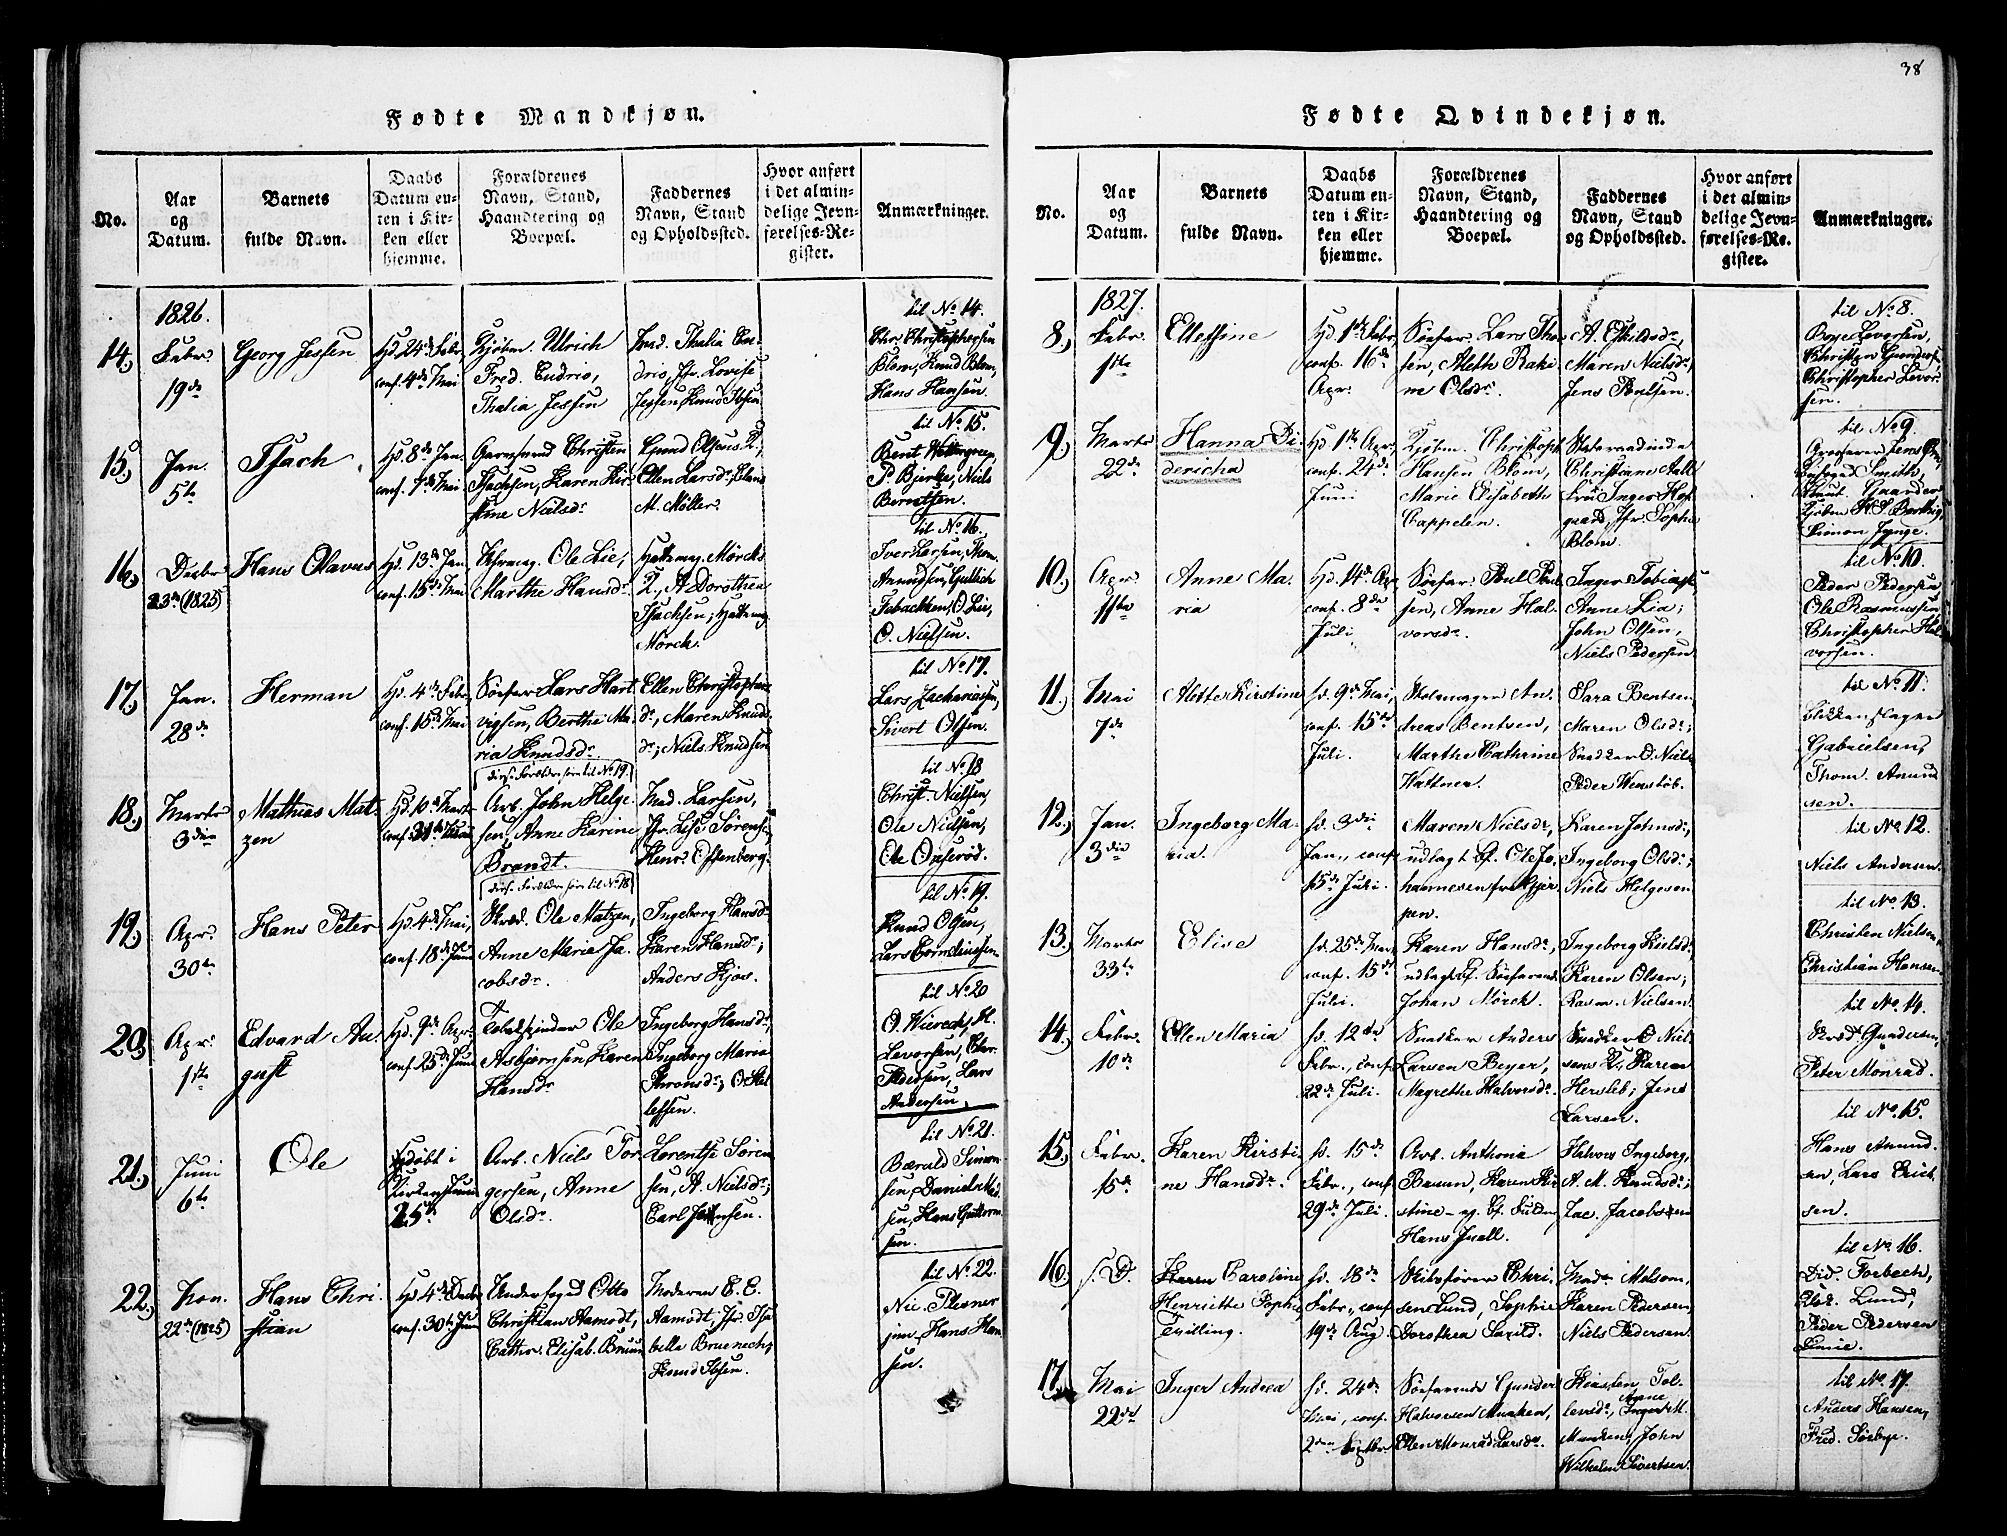 38
Fødte Mandkjøn.
No.
Aar
og
Datum.
Barnets
fulde Navn.
Daabs
Datum en-
ten i Kir-
ken eller
hjemme.
Forældrenes
Navn, Stand,
Haandtering og
Boepæl.
Faddernes
Navn, Stand
og Opholdssted.
Hvor anført
i det almin-
delige Jevn-
førelses-Re-
gister.
Anmærkninger.
1826.
14.)
Febr.
19de
Georg Jessen
Hd. 24de Febr.
conf. 4de Mai
Kjøbm. Ulrich
Fred. Cudrio,
Thalia Jessen
Mad. Thalia Cu-
drio, Jfr. Lovise
Jessen, Knud Ibsen
til No. 14.
Chr. Christophersen
Blom, Knud Blom,
Hans Hansen.
15.)
Jan.
5te
Isach
Hd. 8de Jan.
conf. 7de Mai
Christen
Isachsen, Karen Kir-
stine Nielsdr.
Gund Olsens K.,
Ellen Larsdr.,
M. Møller.
til No. 15.
Bent
P. Bjerke, Niels
Berntsen.
16.)
Decbr.
23de (1825)
Hans Olavus
Hd. 13de Jan.
conf. 15de Mai
Ole Lie,
Marthe Hansdr.
Hattemag. Mørcks
K., A. Dorothea
Isachsen, Hattemag.
Mørch.
til No. 16.
Iver Larsen, Thom.
Amundsen, Gullich
O. Lie,
O. Nielsen.
17.)
Jan.
28de
Herman
Hd. 4de Febr.
conf. 15de Mai
Søefar. Lars Hart-
vigsen, Berthe Ma-
ria Knudsdr.
Ellen Christophers-
dr., Maren Knuds-
dr., Niels Knudsen
til No. 17.
Lars Zachariassen,
Sivert Olsen.
18.)
Marts
3die
Mathias Mat-
zen
Hd. 10de Marts
conf.
(disse Forældre høre til No. 19.)
Arb. John Helge-
sen, Anne Karine
Brandt.
Mad. Larsen,
Jfr. Lise Sørensen,
Henr. Offenberg.
til No. 18
Christ. Nielsen,
Ole Nielsen,
Ole Opserød.
19.)
Apr.
30te
Hans Peter
Hd. 4de Mai,
conf. 18de Juni
(disse Forældre høre til No. 18)
Skred. Ole Matzen,
Anne Maria Ja-
cobsdr.
Ingeborg Hansdr.
Karen Hansdr.,
Anders Kjøs.
til No. 19.
Knud Olsen,
Lars Corneliussen
20.)
Apr.
1ste
Edvard Au-
gust
Hd. 9de Apr.
conf. 25de Juni
Tobakspinder Ole
Asbjørnsen, Karen
Hansdr.
Ingeborg Hansdr.,
Ingeborg Maria
Thronsdr., O. Stel-
lefsen.
til No. 20
O. Wierech, H.
Levorsen, Chr.
Pedersen, Lars
Andersen.
21.)
Juni
6te
Ole
døbt i
Kirken Juni
25de
Arb. Niels Tor-
gersen, Anne
Olsdr.
Lorentse Søren-
sen, A. Nielsdr.,
Carl Jensen.
til No. 21.
Bæruld Simon-
sen, Daniel Mad-
sen, Hans Guttorm-
sen.
22.)
Nov.
22de (1825)
Hans Chri-
stian
Hd. 4de Decbr.
conf. 30te Juni
Underfoged Otto
Christian Aamodt,
Cathr. Elisab. Bruun
Moderen E. E.
Aamodt, Jfr. Isa-
bella Bruenech,
Knud Ibsen.
til No. 22.
Nic. Plesner
jun., Hans Han-
sen.
Fødte Qvindekjøn.
No.
Aar
og
Datum.
Barnets
fulde Navn.
Daabs
Datum en-
ten i Kir-
ken eller
hjemme.
Forældrenes
Navn, Stand,
Haandtering og
Boepæl.
Faddernes
Navn, Stand
og Opholdssted.
Hvor anført
i det almin-
delige Jevn-
førelses-Re.
gister.
Anmærkninger.
1827.
8.)
Febr.
1ste
Ellefine
Hd. 1ste Febr.,
conf. 16de
Apr.
Søefar. Lars Tho-
sen, Aleth Raki-
ne Olsdr.
A. Eskildsdr.,
Maren Nielsdr.,
Jens Poulsen.
til No. 8.
Boye Levorsen,
Christen Gunders.,
Christopher Levor-
sen.
9.)
Marts
22de
Hanna Di-
dericha
Hd. 1ste Apr.,
conf. 24de
Juni
Kjøbm. Christoph.
Hansen Blom,
Marie Elisabeth
Cappelen.
Statsraadinde
Christiane Aall
Fru Inger Hof-
gaard, Jfr. Sophie
Blom.
til No. 9.
Grosserer Jens
Smith,
Knut Gaarder
Kjøbm.
Simon Jynge.
10.)
Apr.
11te
Anne Ma-
ria
Hd. 14de Apr.
conf. 8de
Juli
Søefar. Poul Poul-
sen, Anne Hal-
vorsdr.
Inger Tobiasdr.
Anne Lia;
John Olsen,
Niels Pedersen
til No. 10.
Peder Pedersen,
Ole Rasmussen,
Christopher Hal-
vorsen.
11.)
Mai
7de
Kirstine
Hd. 9de Mai,
conf. 15de
Juli.
Stolemager An-
dreas Bentsen,
Marthe Cathrine
Wattner.
Sara Bentsen
Maren Olsdr.;
Snedker O. Niels.
Peder Wenstøb.
til No. 11.
Blikkenslager
Gabrielsen,
Thom. Amund-
sen.
12.)
Jan.
3die
Ingeborg Ma-
ria.
Hd. 3die
Jan., conf.
15de Juli.
Maren Nielsdr.,
udlagt Bf. Ole Jo-
hannesen fra Gjer-
pen.
Karen Johnsdr.,
Ingeborg Olsdr.;
Niels Helgesen
til No. 12.
Niels Andersen.
13.)
Marts
33te
Elise
Hd. 25de Mar.
conf. 15de
Juli.
Karen Hansdr.,
udlagt Bf. Søefarende
Johan Mørck.
Ingeborg Kielsdr.
Karen Olsen;
Rasm. Nielsen
til No. 13.
Christen Nielsen,
Christian Hansen
14.)
Febr.
10de
Ellen Maria
Hd. 12te
Febr., conf.
22de Juli.
Snedker Anders
Larsen Beyer,
Magrethe Halvorsdr.
Snedker O. Niel-
sens K., Karen
Hersleb; Jens
Larsen.
til No. 14.
Gundersen,
Peter Monrad.
15.)
Febr.
15de
Karen Kirsti-
ne Hansdr.
Hd. 15de
Febr., conf.
29de Juli.
Arb. Anthoni
Bauen, Karen Kir-
stine
Hans Juell.
Halvors Ingeborg,
A. M. Knudsdr.;
Zac. Jacobsen
til No. 15.
Hans Amund-
sen, Lars Erich-
sen.
16.)
s. D.
Caroline
Henriette Sophie
Tvilling.
Hd. 18de
Febr., conf.
19de Aug.
Skibsfører Chri-
sen Lund, Sophie
Dorothea Saxild.
Mad. Molsom,
Karen Pedersen,
Niels Pedersen.
til No. 16.
Did. Forbech,
Lund,
Peder Pedersen
17.)
Mai
22de
Inger Andrea
Hd. 24de
Mai, conf.
2den Septbr.
Søefarende Gunder
Halvorsen Munken,
Ellen Monrad Larsdr.
Kirsten Tol-
levsdr., Anne M.
Munken, John
Wilhelm Sivertsen.
til No. 17.
Anders Hansen,
Fred. Sørbye.